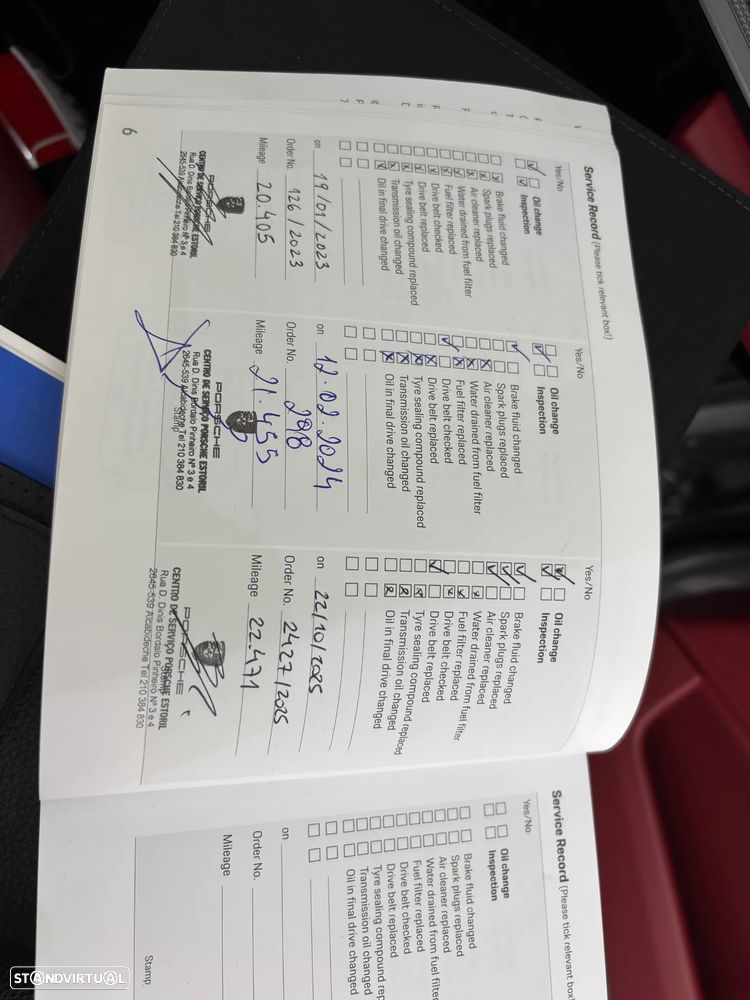 Service Record (Please tick relevant box!)
Yes/No
Oil change
Inspection
Brake fluid changed
Spark plugs replaced
Air cleaner replaced
Water drained from fuel filter
Fuel filter replaced
Drive belt checked
Drive belt replaced
Tyre sealing compound replaced
Transmission oil changed
Oil in final drive changed
on 19/01/2023
Order No. 126/2023
Mileage 20.405
PORSCHE
CENTRO DE SERVIÇO PORSCHE ESTORIL
Rua D. Dinis Bordalo Pinheiro Nº 3 e 4
2645-539 Alcabideche Tel 210 384 830
6
Yes/No
Oil change
Inspection
Brake fluid changed
Spark plugs replaced
Air cleaner replaced
Water drained from fuel filter
Fuel filter replaced
Drive belt checked
Drive belt replaced
Tyre sealing compound replaced
Transmission oil changed
Oil in final drive changed
on 12.02.2024
Order No. 298
Mileage 21.455
PORSCHE
CENTRO DE SERVIÇO PORSCHE ESTORIL
Rua D. Dinis Bordalo Pinheiro Nº 3 e 4
2645-539 Alcabideche Tel 210 384 830
Stamp
Yes/No
Oil change
Inspection
Brake fluid changed
Spark plugs replaced
Air cleaner replaced
Water drained from fuel filter
Fuel filter replaced
Drive belt checked
Drive belt replaced
Tyre sealing compound replaced
Transmission oil changed
Oil in final drive changed
on 22/10/2025
Order No. 2427/2025
Mileage 22.471
PORSCHE
Stamp
CENTRO DE SERVIÇO PORSCHE ESTORIL
Rua D. Dinis Bordalo Pinheiro Nº 3 e 4
2645-539 Alcabideche Tel 210 384 830
Service Record (Please tick relevant box
Yes/No
Oil change
Inspection
Brake fluid changed
Spark plugs replaced
Air cleaner replaced
Water drained from fuel filter
Fuel filter replaced
Drive belt checked
Drive belt replaced
Tyre sealing compound rep
Transmission oil changed
Oil in final drive changed
on
Order No.
Mileage
Stamp
STANDVIRTUAL